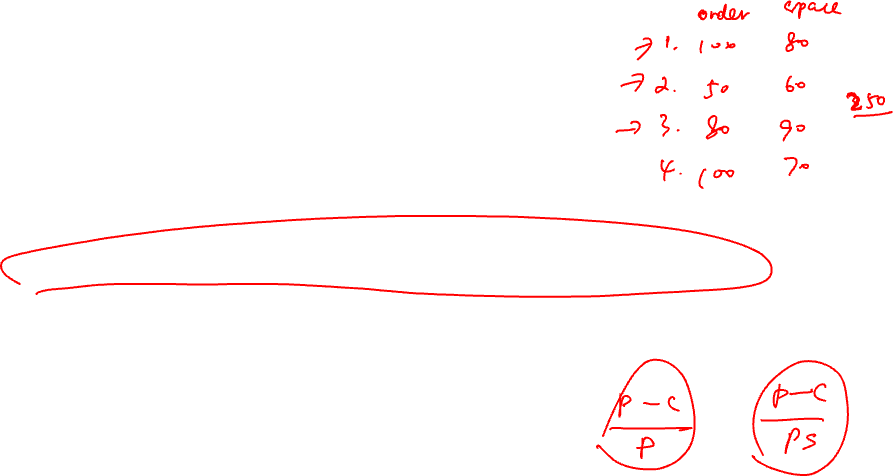 order space
→ 1. 100 80
→ 2. 50 60
250
→ 3. 80 90
4. 100 70
P-C P-C
P PS